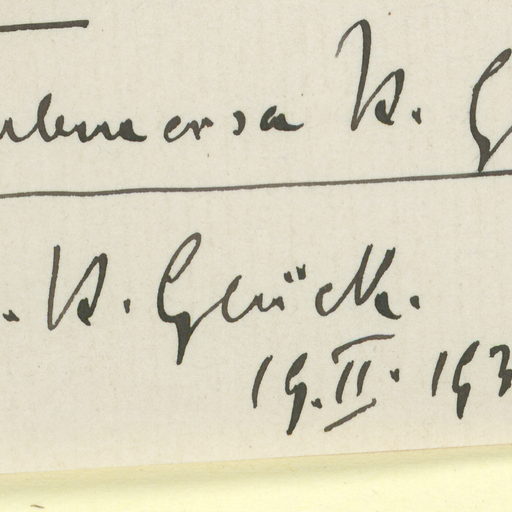 ubmersa H. G
. H. Glück.
19. II. 193